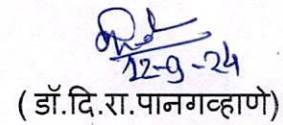 12-9-24
( डॉ.दि.रा.पानगव्हाणे)